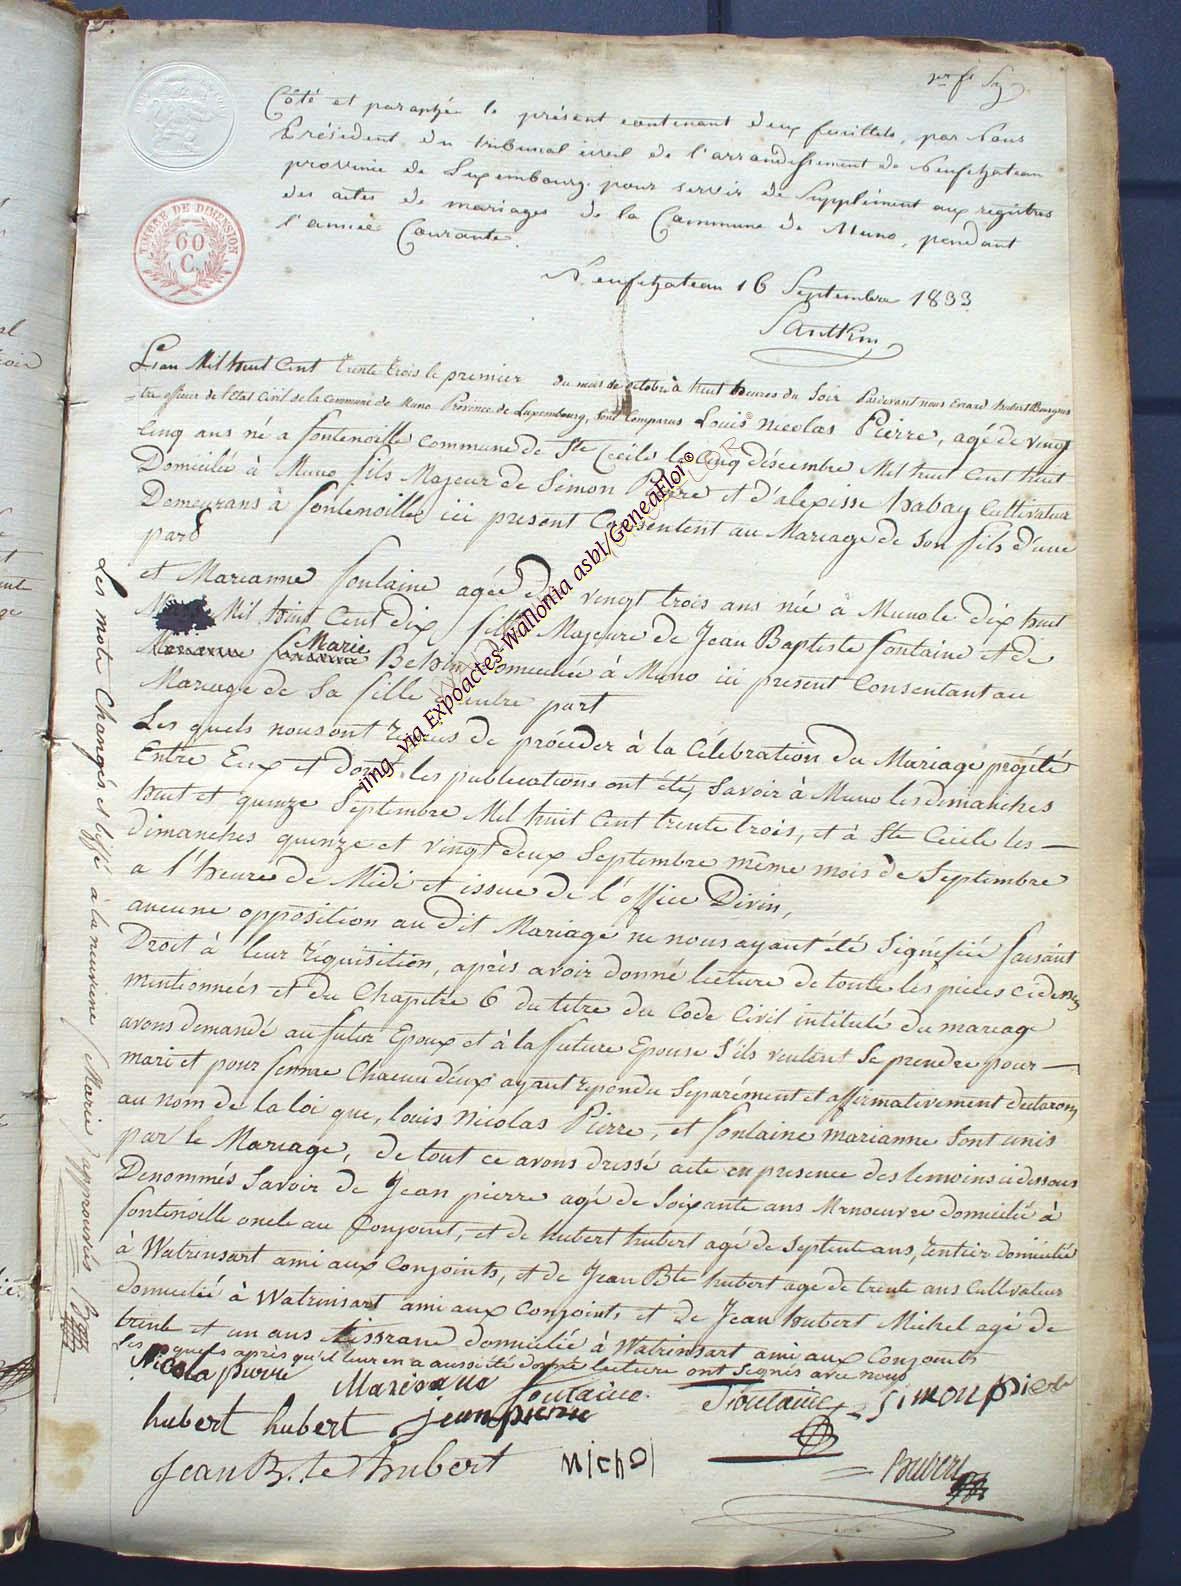 1er ft
Côté et paraphé le présent contenant deux feuillets, par Nous
Président du tribunal civil de l'arrondissement de Neufchateau
province de Luxembourg. pour servir de Supplément aux registres
des actes de mariages de la Commune de Muno, pendant
l'année Courante.
Neufchateau 16 Septembre 1833
TIMBRE DE DIMENSION
60
C.
L'an Mil huit Cent Trente trois le premier du mois de octobre à huit heures du Soir Pardevant nous Evrard hubert Bourgmes
tre officier de l'Etat Civil de la Commune de Muno Province de Luxembourg, sont Comparus Louis Nicolas Pierre, agé de vingt
Cinq ans né à fontenoille commune de Ste Cécile le Cinq décembre Mil huit Cent huit
Domicilié à Muno fils Majeur de Simon Pierre et d'alexisse habay Cultivateur
Demeurans à fontenoille ici present Consentent au Mariage de Son fils d'une
part
et Marianne fontaine agée de vingt trois ans née à Muno le dix huit
Mil huit Cent dix fille Majeure de Jean Baptiste fontaine et de
Marie Domiciliée à Muno ici present Consentant au
Mariage de Sa fille d'autre part
Les quels nous ont requis de procéder à la Célébration du Mariage projété
Entre Eux et dont les publications ont été, Savoir à Muno les dimanches
huit et quinze Septembre Mil huit Cent trente trois, et à Ste Cecile les —
dimanches quinze et vingt deux Septembre même mois de Septembre
a l'heure de Midi et issue de l'office Divin,
aucune opposition au dit Mariage ne nous ayant été Signéfiée faisant
Droit à leur réquisition, après avoir donné lecture de toute les pièces cidessus
mentionneés et du Chapitre 6 du titre du Code Civil intitulé du mariage
avons demandé au futur Epoux et à la future Epouse S'ils veulent Se prendre pour —
mari et pour femme Chacun d'eux ayant repondu Séparément et affirmativement declarons
au nom de la loi que, Louis Nicolas Pierre, et fontaine marianne Sont unis
par le Mariage, de tout ce avons dressé acte en presence des temoins ci dessous
Denommés Savoir de Jean pierre agé de Soixante ans Manoeuvre domicilié à
fontenoille oncle au Conjoint, et de hubert hubert agé de Septente ans, rentier domicilié
à Watrinsart ami aux Conjoints, et de Jean Bte hubert agé de trente ans Cultivateur
domicilié à Watrinsart ami aux Conjoints et de Jean hubert Michel agé de
trente et un ans tisserand domicilié à Watrinsart ami aux Conjoints
Les quels après qu'il leur en a aussi été donné lecture ont Signés avec nous
Nicola pierre Marieanne fontaine. Fontaine Simon pierre
hubert hubert jean pierre
Jean B.te hubert Michel
Les mots Changés et biffé à la neuvième / Marie / approuvés
iing via Expoactes-Wallonia asbl/GeneaFlor®